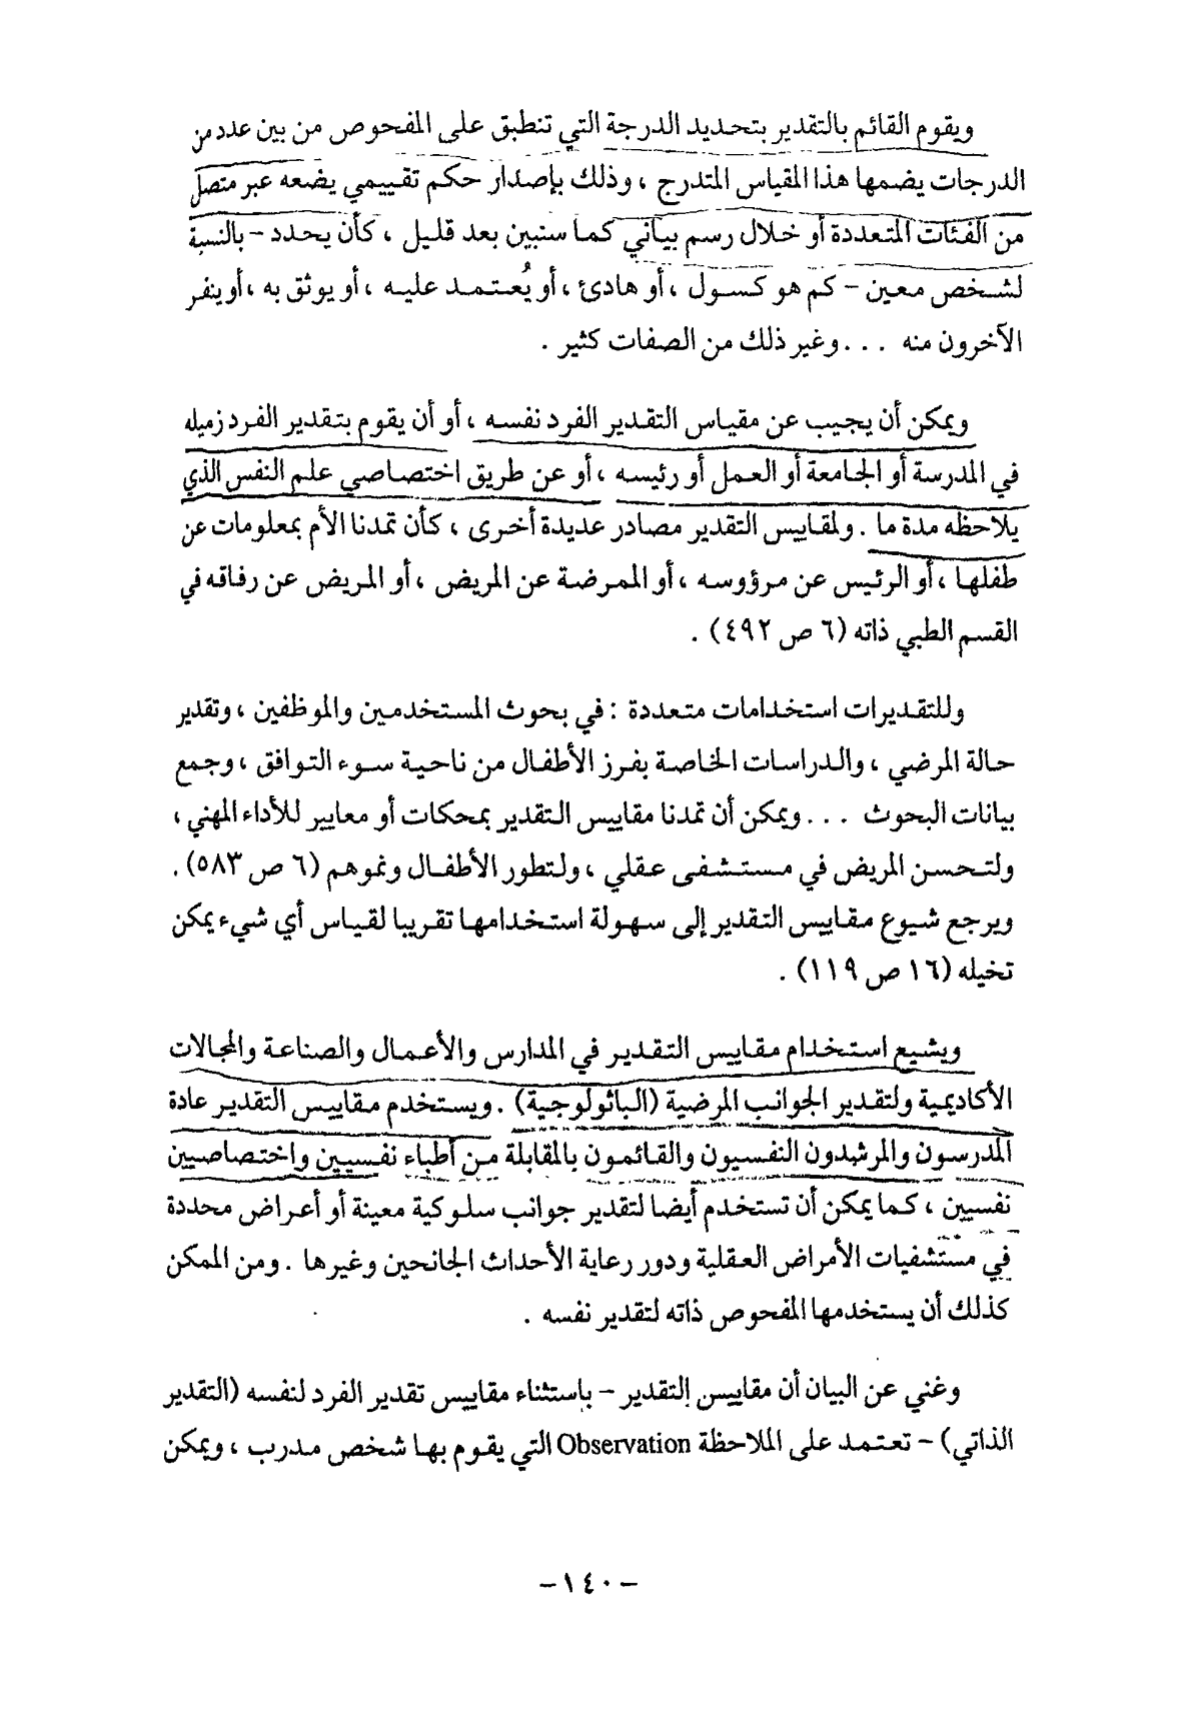 ويقوم القائم بالتقدير بتحديد الدرجة التي تنطبق على المفحوص من بين عدد من
الدرجات يضمها هذا المقياس المتدرج ، وذلك بإصدار حكم تقييمي يضعه عبر متصل
من الفئات المتعددة أو خلال رسم بياني كما سنبين بعد قليل ، كأن يحدد – بالنسبة
لشخص معين – كم هو كسول ، أو هادئ ، أو يُعتمد عليه ، أو يوثق به ، أو ينفر
الآخرون منه . . . وغير ذلك من الصفات كثير .
ويمكن أن يجيب عن مقياس التقدير الفرد نفسه ، أو أن يقوم بتقدير الفرد زميله
في المدرسة أو الجامعة أو العمل أو رئيسه ، أو عن طريق اختصاصي علم النفس الذي
يلاحظه مدة ما . ولمقاييس التقدير مصادر عديدة أخرى ، كأن تمدنا الأم بمعلومات عن
طفلها ، أو الرئيس عن مرؤوسه ، أو الممرضة عن المريض ، أو المريض عن رفاقه في
القسم الطبي ذاته (٦ ص ٤٩٢) .
وللتقديرات استخدامات متعددة : في بحوث المستخدمين والموظفين ، وتقدير
حالة المرضي ، والدراسات الخاصة بفرز الأطفال من ناحية سوء التوافق ، وجمع
بيانات البحوث . . . ويمكن أن تمدنا مقاييس التقدير بمحكات أو معايير للأداء المهني ،
ولتحسن المريض في مستشفى عقلي ، ولتطور الأطفال ونموهم (٦ ص ٥٨٣) .
ويرجع شيوع مقاييس التقدير إلى سهولة استخدامها تقريبا لقياس أي شيء يمكن
تخيله (١٦ ص ١١٩) .
ويشيع استخدام مقاييس التقدير في المدارس والأعمال والصناعة والمجالات
الأكاديمية ولتقدير الجوانب المرضية (الباثولوجية) . ويستخدم مقاييس التقدير عادة
المدرسون والمرشدون النفسيون والقائمون بالمقابلة من أطباء نفسيين واختصاصيين
نفسيين ، كما يمكن أن تستخدم أيضا لتقدير جوانب سلوكية معينة أو أعراض محددة
في مستشفيات الأمراض العقلية ودور رعاية الأحداث الجانحين وغيرها . ومن الممكن
كذلك أن يستخدمها المفحوص ذاته لتقدير نفسه .
وغني عن البيان أن مقاييس التقدير – باستثناء مقاييس تقدير الفرد لنفسه (التقدير
الذاتي) – تعتمد على الملاحظة Observation التي يقوم بها شخص مدرب ، ويمكن
– ١٤٠ –